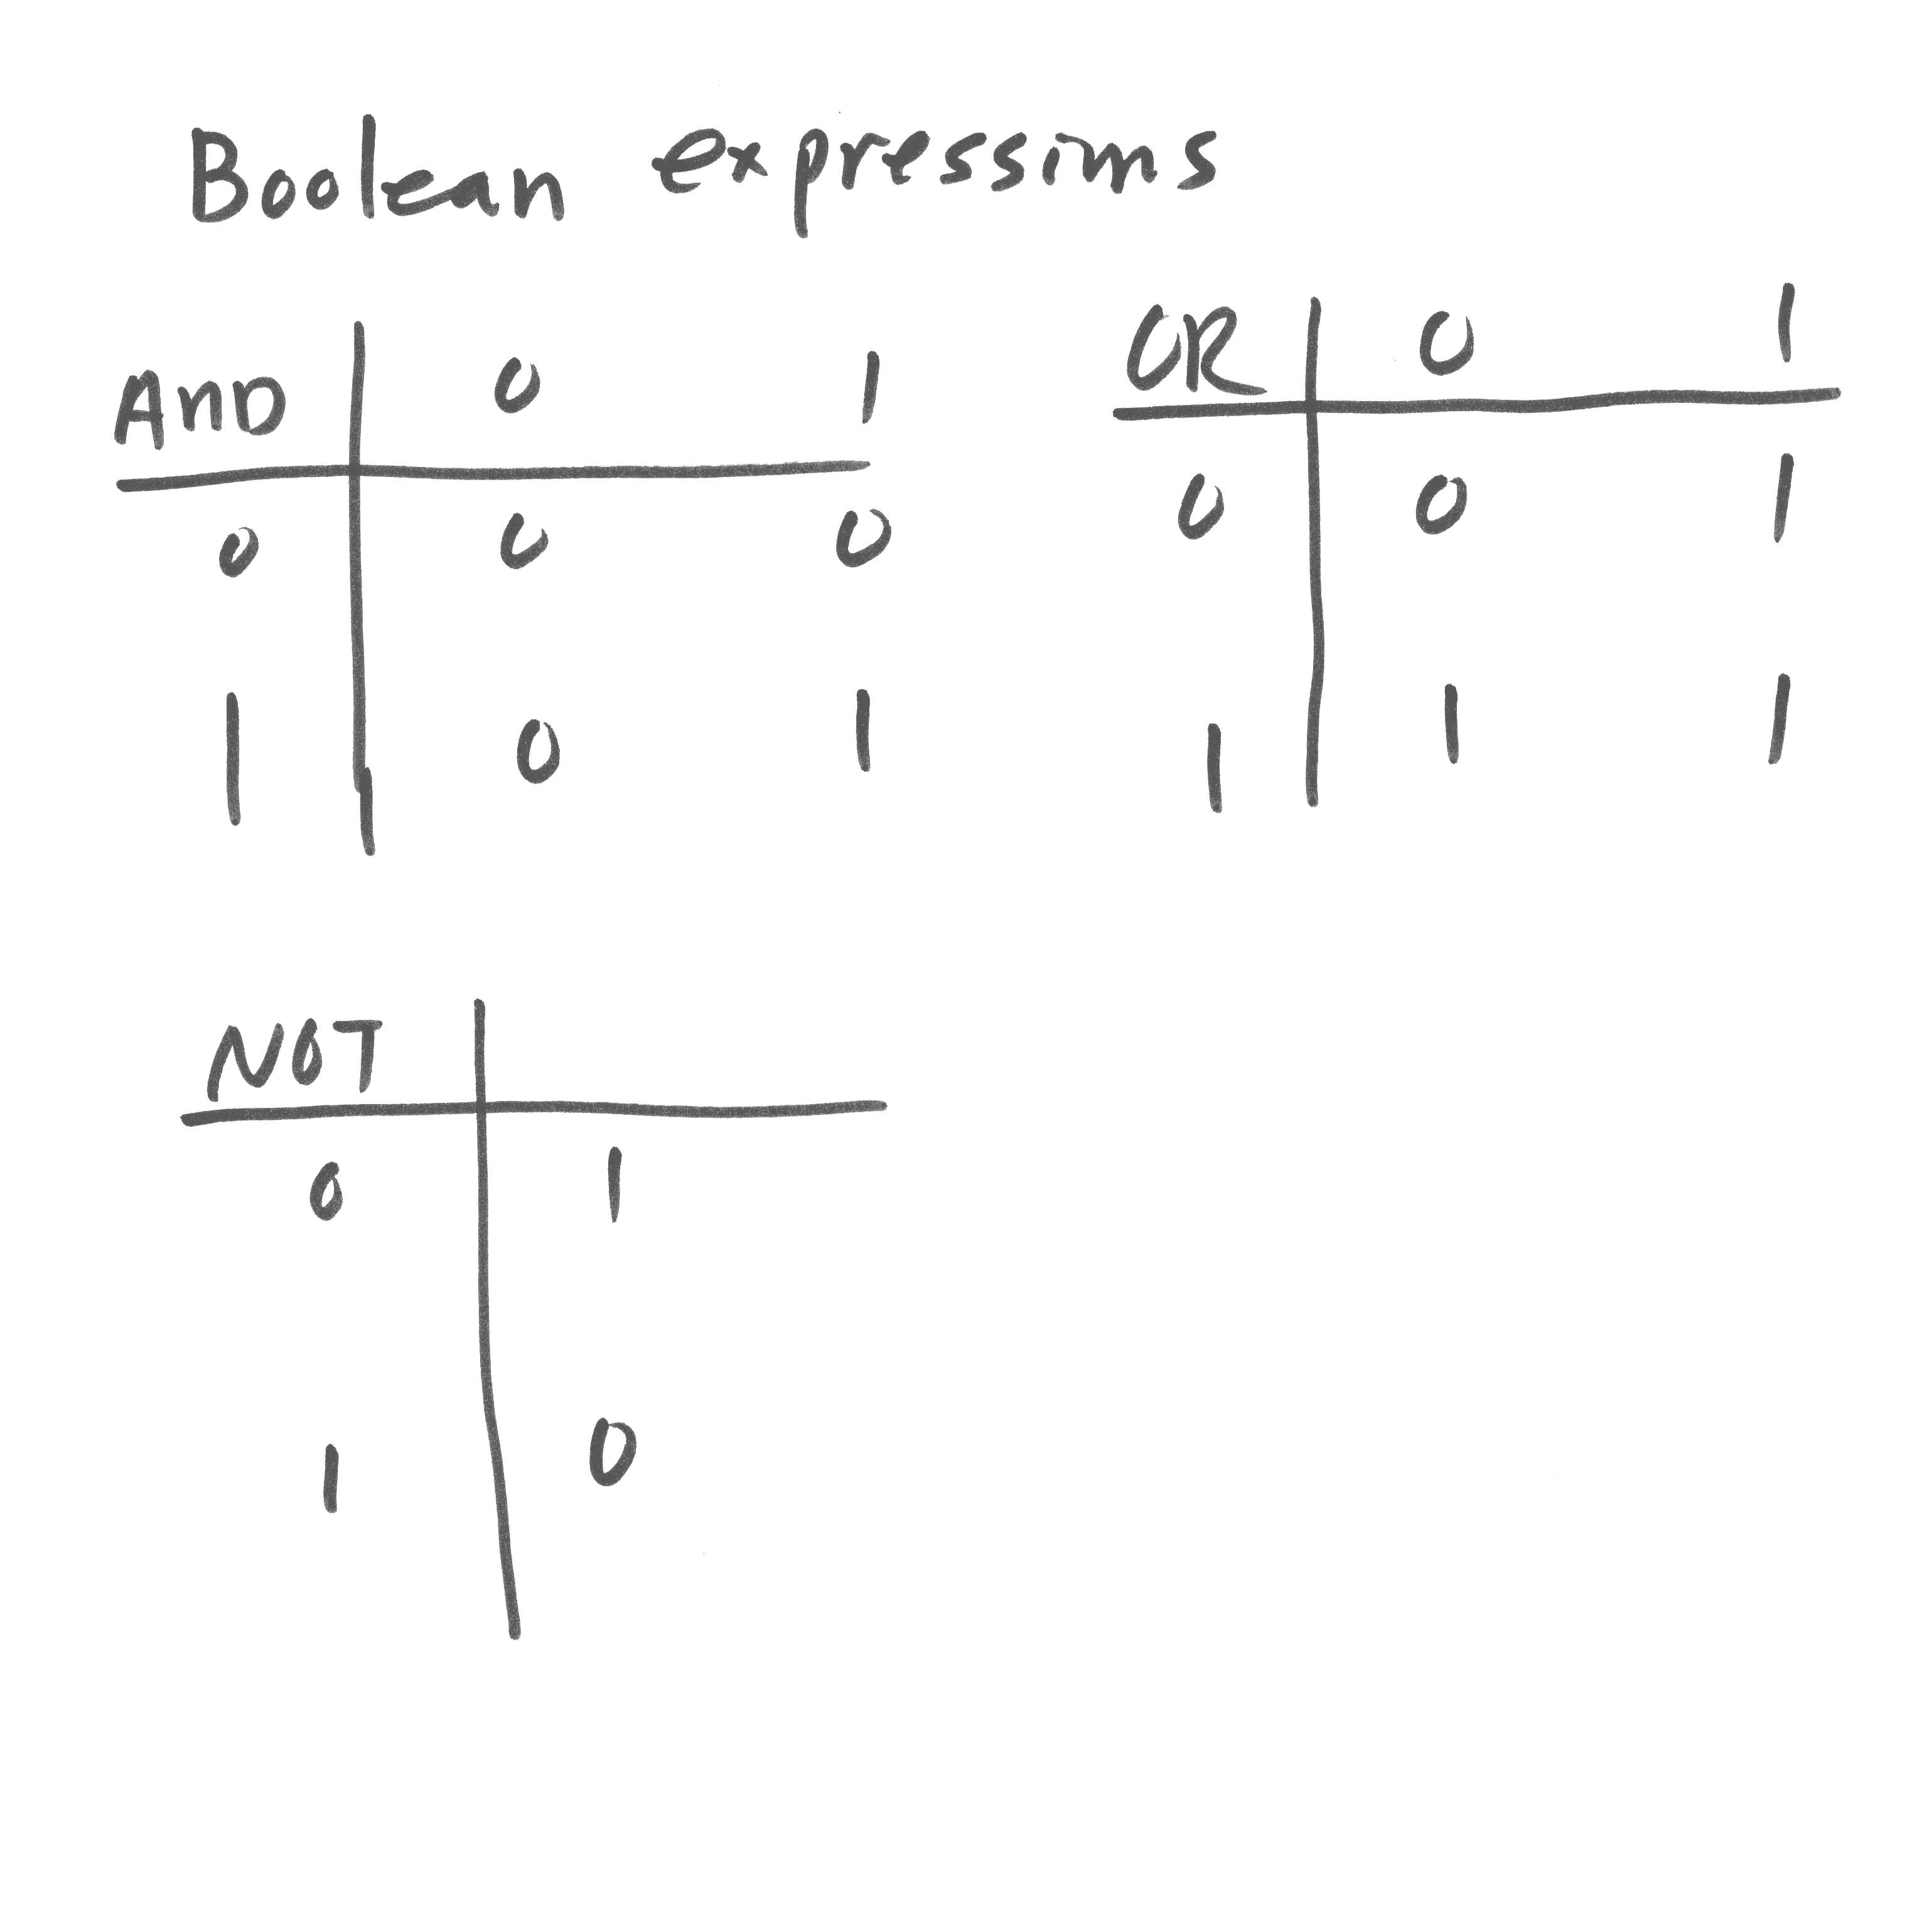 Boolean expressions
AND 0 1
0 0 0
1 0 1
OR 0 1
0 0 1
1 1 1
NOT
0 1
1 0